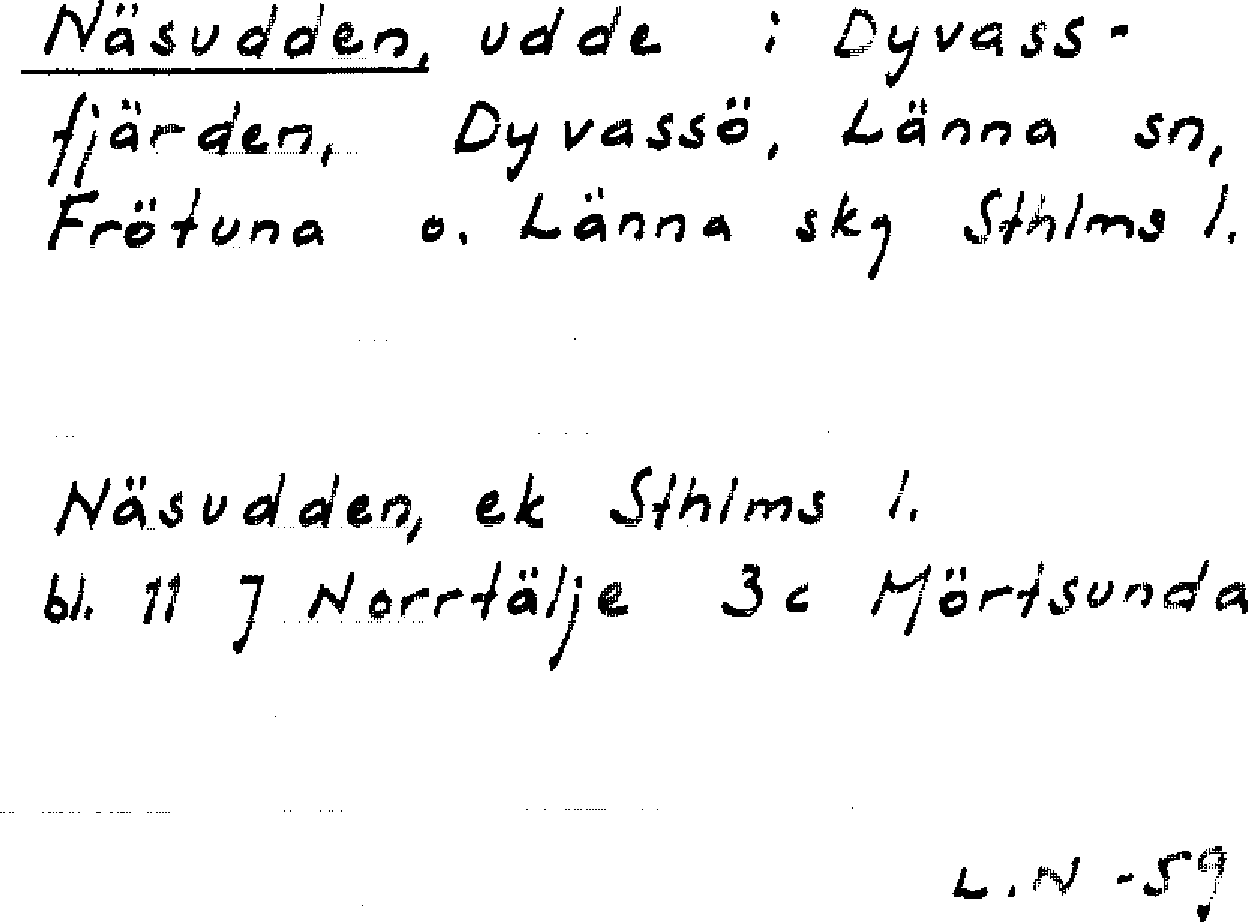 Näsudden, udde i Dyvass-
fjärden, Dyvassö, Länna sn,
Frötuna o. Länna skg Sthlms l.
Näsudden, ek Sthlms l.
bl. 11 J Norrtälje 3c Mörtsunda
L.N -59